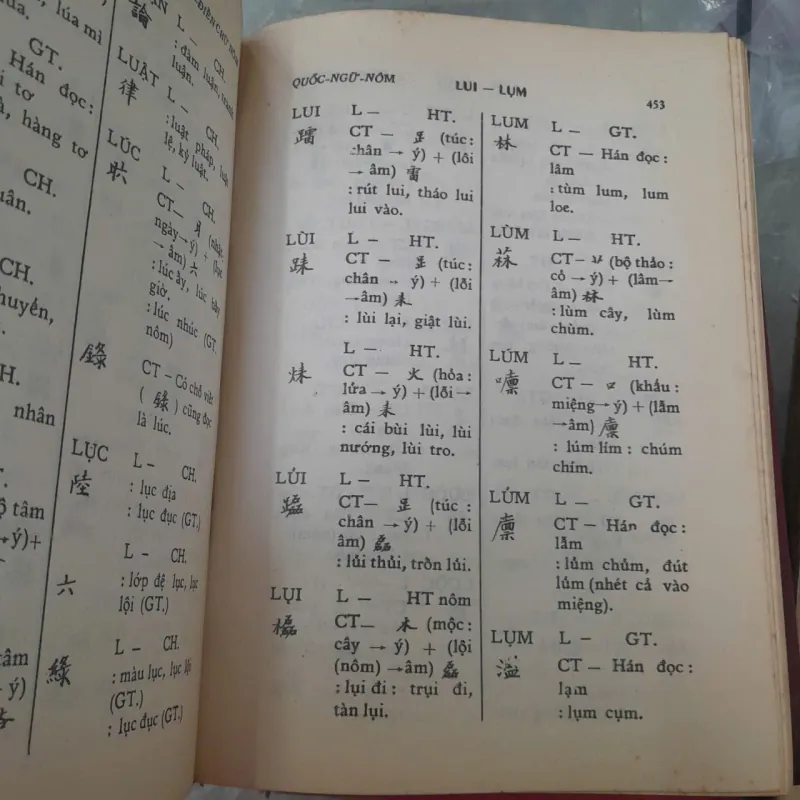 , lúa mì
GT.
Hán đọc:
i tơ
à, hàng tơ
CH.
uân.
CH.
huyến,
H.
nhân
ộ tâm
→ý)+
tâm
ý)
-ĐIỂN CHỮ NÔM
論
L — CH.
: đàm luận, tranh
luận.
LUẬT L — CH.
律
: luật pháp, luật
lệ, kỷ luật.
LÚC L — CH.
CT —
ngày→ý) + (lục
→ âm) 六
: lúc ấy, lúc bấy
giờ.
: lúc nhúc (GT.
nôm)
錄
CT — Có chỗ viết
( 錄 ) cũng đọc
là lúc.
LỤC L — CH.
陸
: lục địa
: lục đục (GT.)
L — CH.
六
: lớp đệ lục, lục
lội (GT.)
L — CH.
綠
: màu lục, lục lội
(GT.)
: lục đục (GT.)
QUỐC-NGỮ-NÔM LUI — LỤM 453
LUI L — HT.
蹓 CT — (túc:
chân → ý) + (lôi
→ âm) 雷
: rút lui, tháo lui
lui vào.
LÙI L — HT.
CT — (túc:
chân → ý) + (lỗi
→âm) 耒
: lùi lại, giật lùi.
L — HT.
CT — 火 (hỏa:
lửa → ý) + (lỗi →
âm) 耒
: cái bùi lùi, lùi
nướng, lùi tro.
LỦI L — HT.
CT — (túc:
chân → ý) + (lỗi
âm) 磊
: lủi thủi, trồn lủi.
LỤI L — HT nôm
CT — 木 (mộc:
cây → ý) + (lội
(nôm) →âm) 磊
: lụi đi: trụi đi,
tàn lụi.
LUM L — GT.
林
CT — Hán đọc:
lâm
: tùm lum, lum
loe.
LÙM L — HT.
菻 CT — (bộ thảo:
cỏ → ý) + (lâm→
âm) 林
: lùm cây, lùm
chùm.
LÚM L — HT.
CT — 口 (khẩu:
miệng→ý) + (lẫm
→âm) 廩
: lúm lím: chúm
chím.
LỦM L — GT.
廩
CT — Hán đọc:
lẫm
: lủm chủm, đút
lủm (nhét cả vào
miệng).
LỤM L — GT.
CT — Hán đọc:
lạm
: lụm cụm.